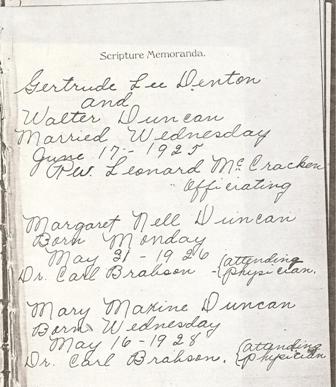 Scripture Memoranda.
Gertrude Lee Denton
and
Walter Duncan
Married Wednesday
June 17 - 1925
Rev. Leonard McCracken
Officiating
Margaret Nell Duncan
Born Monday
May 31 - 1926
Dr. Carl Brabson - (attending physician.
Mary Maxine Duncan
Born Wednesday
May 16 - 1928
Dr. Carl Brabson. (attending physician